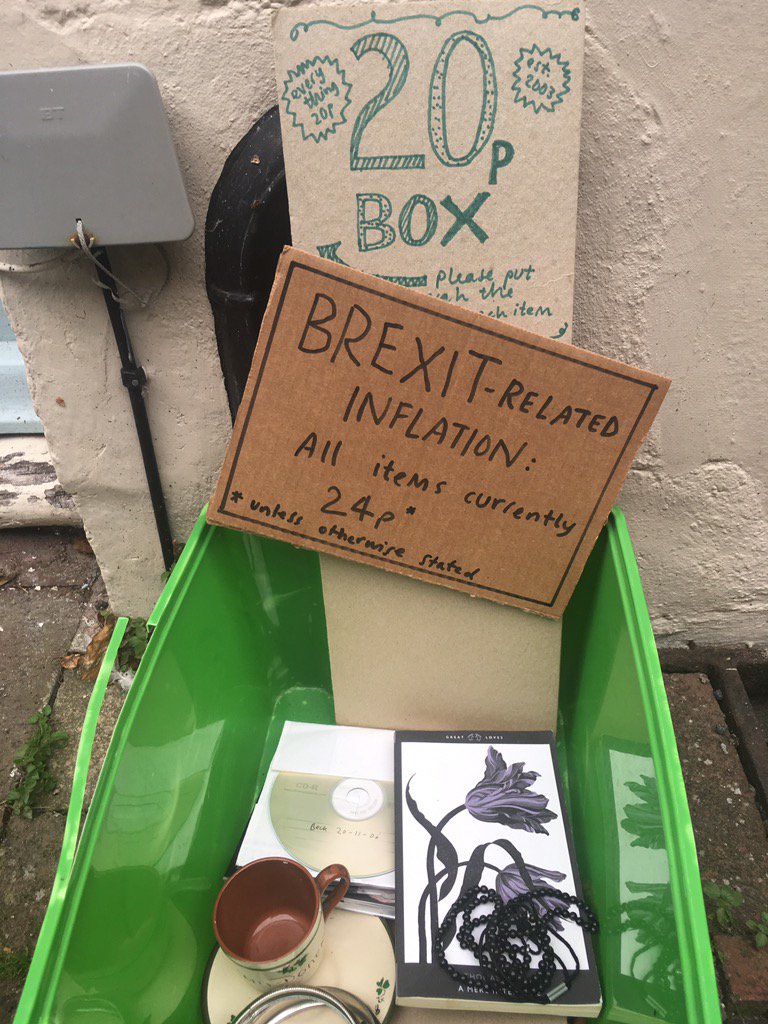 BT
every
thing
20p
20p
est.
2003
BOX
Please put
the
item
BREXIT-RELATED
INFLATION:
All items currently
24p*
*unless otherwise stated
GREAT LOVES
CD-R
Beck 20-11-02
A